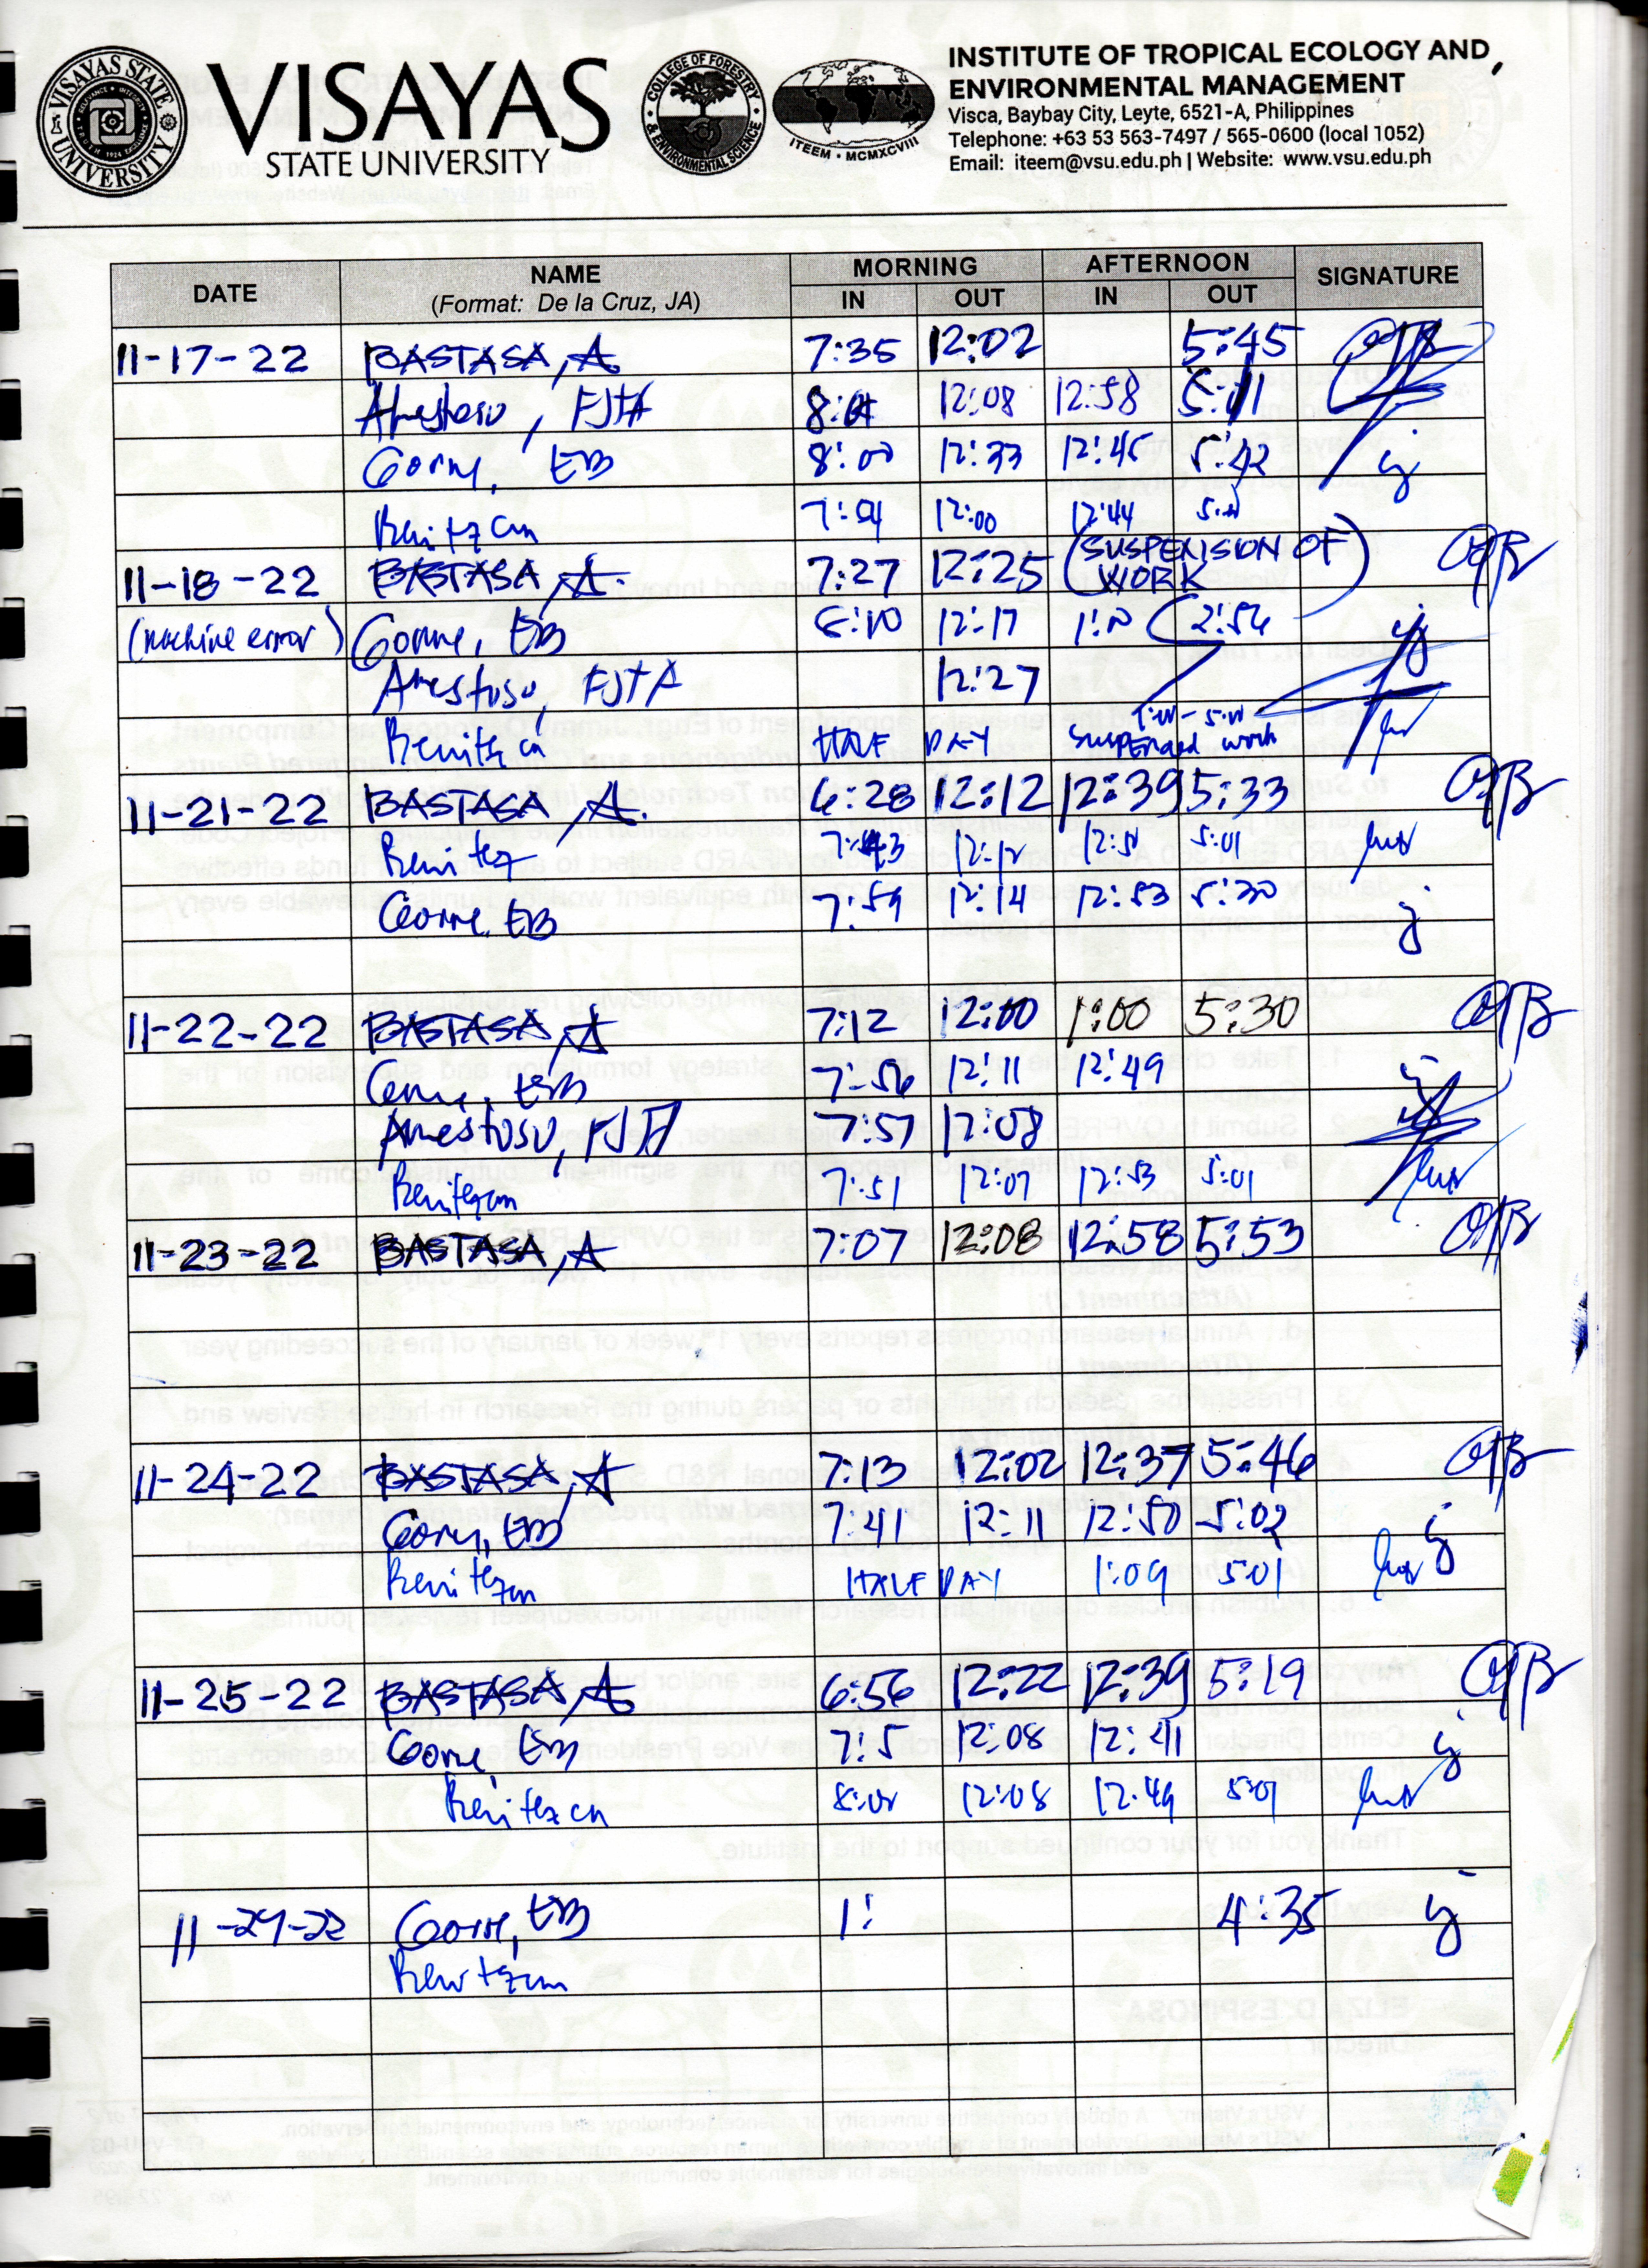 VISAYAS
STATE UNIVERSITY
VISAYAS STATE UNIVERSITY
COLLEGE OF FORESTRY & ENVIRONMENTAL SCIENCE
ITEEM • MCMXCVIII
INSTITUTE OF TROPICAL ECOLOGY AND
ENVIRONMENTAL MANAGEMENT
Visca, Baybay City, Leyte, 6521-A, Philippines
Telephone: +63 53 563-7497 / 565-0600 (local 1052)
Email: iteem@vsu.edu.ph | Website: www.vsu.edu.ph
DATE NAME MORNING AFTERNOON SIGNATURE
(Format: De la Cruz, JA) IN OUT IN OUT
11-17-22 BASTASA, A 7:35 12:02 5:45
Amestoso, FJTA 12:08 12:58
Gorne, EB 8:00 12:33 12:45 5:42
Benitez cm 12:00 12:44
11-18-22 BASTASA, A. 7:27 12:25 (SUSPENSION OF WORK)
(machine error) Gorne, EB 12:17 2:54
Amestoso, FJTA 12:27
Benitez HALF DAY suspended work
11-21-22 BASTASA, A. 6:28 12:12 12:39 5:33
Benitez 7:43 12:12 5:01
Gorne, EB 7:59 12:14 12:53 5:30
11-22-22 BASTASA, A 7:12 12:00 1:00 5:30
Gorne, EB 7:56 12:11 12:49
Amestoso, FJTA 7:57 12:08
Benitez cm 7:51 12:07 12:53 5:01
11-23-22 BASTASA, A 7:07 12:08 12:58 5:53
11-24-22 BASTASA, A 7:13 12:02 12:37 5:46
Gorne, EB 7:41 12:11 12:50 5:02
Benitez cm HALF DAY 1:09 5:01
11-25-22 BASTASA, A 6:56 12:22 12:39 5:19
Gorne, EB 7:5 12:08 12:41
Benitez cm 12:08 12:49 5:01
11-29-22 Gorne, EB 1: 4:35
Benitez cm